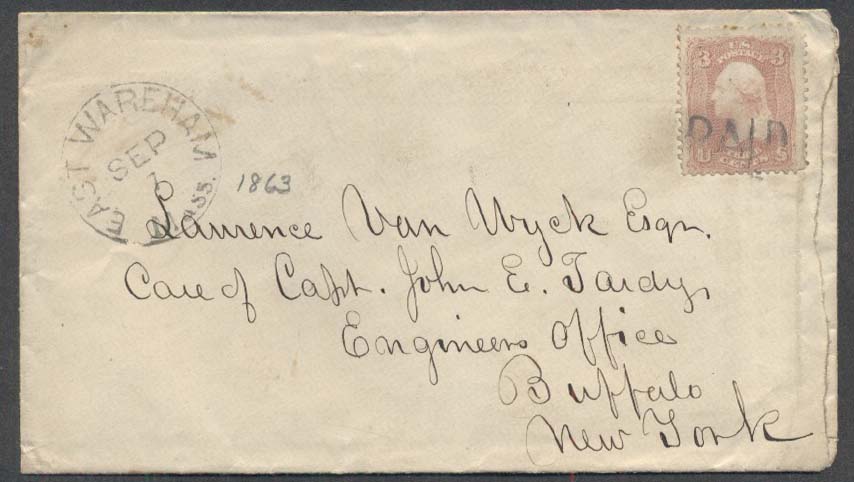 EAST WAREHAM
SEP
MASS.
1863
3 U.S. 3
POSTAGE
PAID
U S
Laurence Van Wyck Esqr.
Care of Capt. John E. Tardy,
Engineers Office
Buffalo
New York